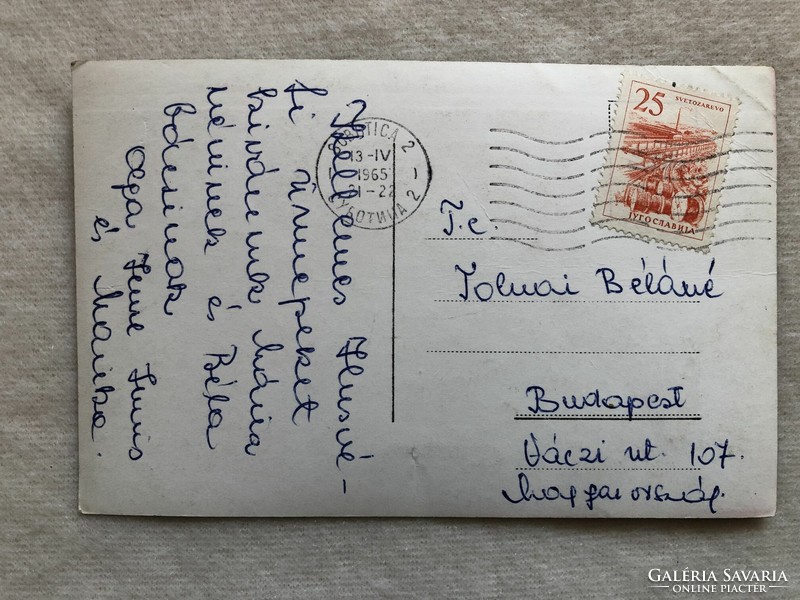 Kellemes Húsvé-
ti ünnepeket
kivánunk Mária
néninek és Béla
bácsinak
Olga Imre
és Marika.
SUBOTICA 2
13-IV
1965
21-22
СУБОТИЦА 2
25
SVETOZAREVO
ЈУГОСЛАВИЈА
T.c.
Tolnai Béláné
Budapest
Váczi ut. 107.
Magyarország.
GALÉRIA SAVARIA
ONLINE PIACTÉR